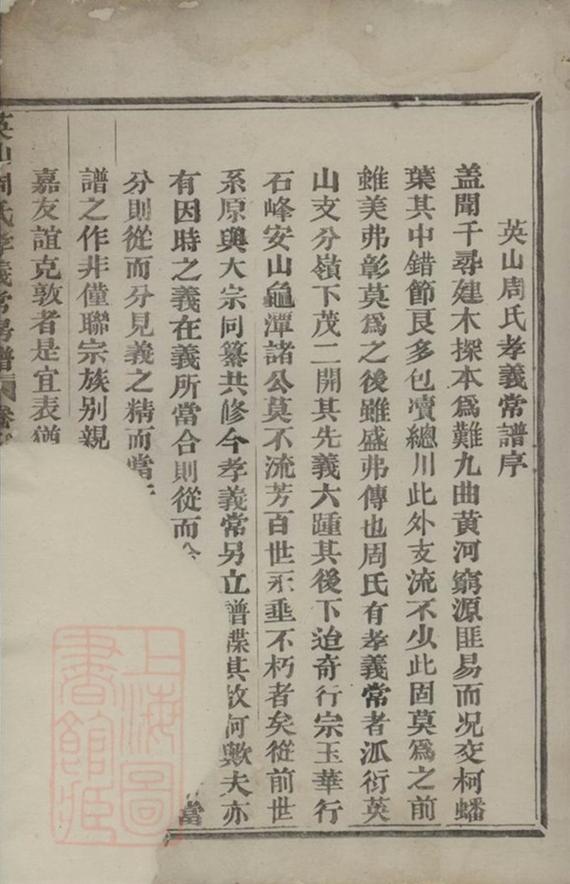 英山周氏孝義常譜序
葢聞千尋建木探本爲難九曲黄河窮源匪易而况交柯蟠
葉其中錯節艮多包瀆總川此外支流不少此固莫爲之前
雖美弗彰莫爲之後雖盛弗傳也周氏有孝義常者派衍英
山支分嶺下茂二開其先義六踵其後下迨奇行宗玉華行
石峰安山龜潭諸公莫不流芳百世永垂不朽者矣從前世
系原與大宗同纂共修今孝義常另立譜牒其故何歟夫亦
有因時之義在義所當合則從而合 當
分則從而分見義之精而當
譜之作非僅聯宗族别親
嘉友誼克敦者是宜表猶
英山周氏孝義常房譜 卷
上海圖書館藏